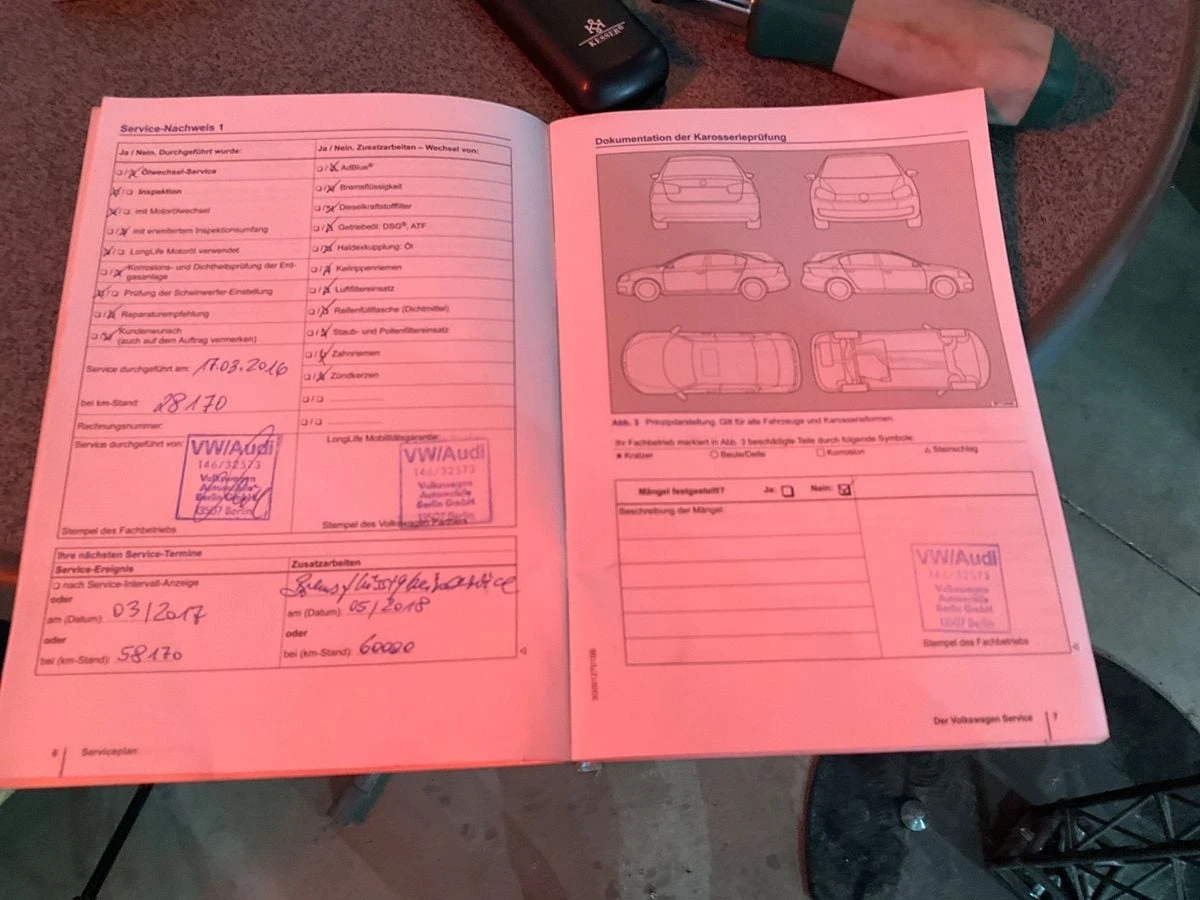 KESSER®
Service-Nachweis 1
Ja / Nein. Durchgeführt wurde:
❏ / ❏ Ölwechsel-Service
❏ / ❏ Inspektion
❏ / ❏ mit Motorölwechsel
❏ / ❏ mit erweitertem Inspektionsumfang
❏ / ❏ LongLife Motoröl verwendet
❏ / ❏ Korrosions- und Dichtheitsprüfung der Erd-
gasanlage
❏ / ❏ Prüfung der Scheinwerfer-Einstellung
❏ / ❏ Reparaturempfehlung
❏ / ❏ Kundenwunsch
(auch auf dem Auftrag vermerken)
Service durchgeführt am: 17.03.2016
bei km-Stand: 28170
Rechnungsnummer:
Service durchgeführt von:
VW/Audi
146/32573
Volkswagen
Automobile
Berlin GmbH
13507 Berlin
Stempel des Fachbetriebs
Ja / Nein. Zusatzarbeiten – Wechsel von:
❏ / ❏ AdBlue®
❏ / ❏ Bremsflüssigkeit
❏ / ❏ Dieselkraftstofffilter
❏ / ❏ Getriebeöl: DSG®, ATF
❏ / ❏ Haldexkupplung: Öl
❏ / ❏ Keilrippenriemen
❏ / ❏ Luftfiltereinsatz
❏ / ❏ Reifenfüllflasche (Dichtmittel)
❏ / ❏ Staub- und Pollenfiltereinsatz
❏ / ❏ Zahnriemen
❏ / ❏ Zündkerzen
❏ / ❏
❏ / ❏
LongLife Mobilitätsgarantie:
VW/Audi
146/32573
Volkswagen
Automobile
Berlin GmbH
13507 Berlin
Stempel des Volkswagen Partners
Ihre nächsten Service-Termine
Service-Ereignis
❏ nach Service-Intervall-Anzeige
oder
am (Datum): 03/2017
oder
bei (km-Stand): 58170
Zusatzarbeiten
Bremsflüssigkeitsservice
am (Datum): 05/2018
oder
bei (km-Stand): 60000
6 Serviceplan
Dokumentation der Karosserieprüfung
Abb. 3 Prinzipdarstellung. Gilt für alle Fahrzeuge und Karosserieformen.
Ihr Fachbetrieb markiert in Abb. 3 beschädigte Teile durch folgende Symbole:
Kratzer Beule/Delle Korrosion Steinschlag
Mängel festgestellt? Ja: ❏ Nein: ☒
Beschreibung der Mängel:
VW/Audi
146/32573
Volkswagen
Automobile
Berlin GmbH
13507 Berlin
Stempel des Fachbetriebs
Der Volkswagen Service 7